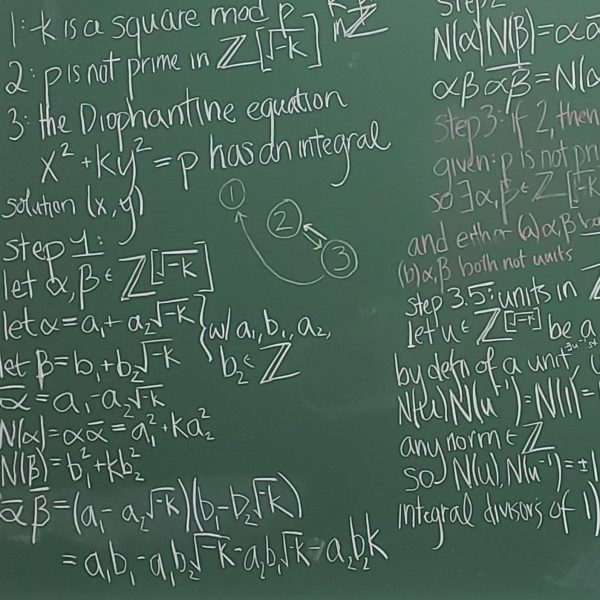 1: -k is a square mod p
2: p is not prime in ℤ[√-k]
3: the Diophantine equation
x² + ky² = p has an integral
solution (x,y)
1
2
3
step 1:
let α, β ∈ ℤ[√-k]
let α = a₁ + a₂√-k
let β = b₁ + b₂√-k
w/ a₁, b₁, a₂,
b₂ ∈ ℤ
ᾱ = a₁ - a₂√-k
N(α) = αᾱ = a₁² + ka₂²
N(β) = b₁² + kb₂²
ᾱ β̄ = (a₁ - a₂√-k)(b₁ - b₂√-k)
= a₁b₁ - a₁b₂√-k - a₂b₁√-k - a₂b₂k
Step 2
N(α)N(β) = αᾱ
αβ αβ̄ = N(α
Step 3: if 2, then
given: p is not pri
so ∃α, β ∈ ℤ[√-k
and either (a) α, β
(b) α, β both not units
Step 3.5: units in ℤ
let u ∈ ℤ[√-k] be a
by defn of a unit,
N(u)N(u⁻¹) = N(1) =
any norm ∈ ℤ
so N(u), N(u⁻¹) = ±1
integral divisors of 1)